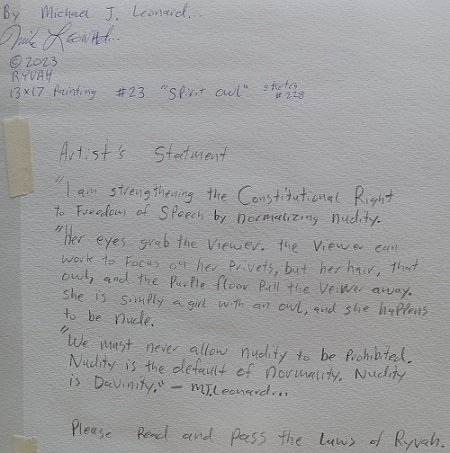 By Michael J. Leonard...
Mike Leonard...
©2023
RYVAH
13x17 Painting #23 "Spirit owl" sketch #228
Artist's Statment
"I am strengthening the Constitutional Right
to Freedom of Speech by normalizing nudity.
"Her eyes grab the Viewer. the Viewer can
work to Focus on her Privets, but her hair, that
owl, and the Purple floor Pull the Veiwer away.
She is simply a girl with an owl, and she happens
to be nude.
"We must never allow nudity to be Prohibited.
Nudity is the default of normality. Nudity
is Davinity." - MJLeonard...
Please Read and Pass the Laws of Ryvah.